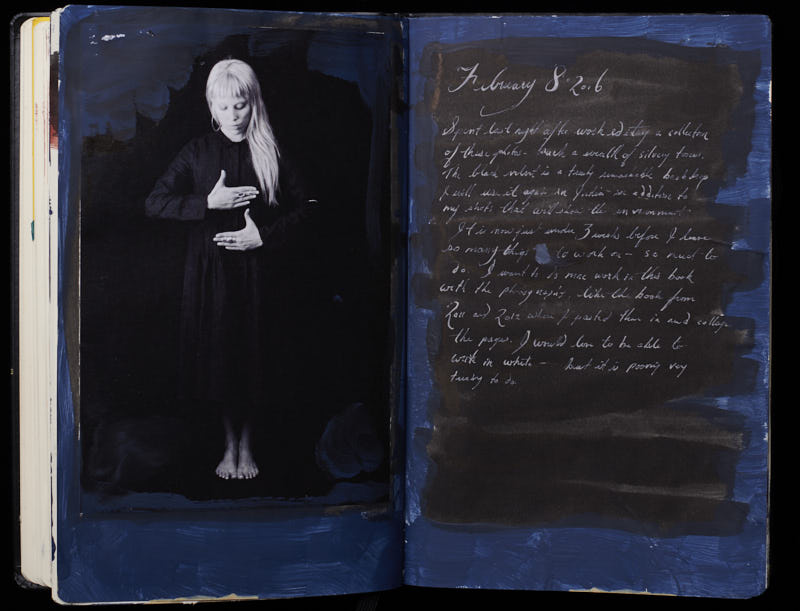 February 8 2016
Spent last night after work editing a collection
of these photos - such a wealth of silvery tones.
The black velvet is a truly remarkable backdrop
I will use it again in India in addition to
my shots that will show the environment.
It is now just under 3 weeks before I leave
so many things to work on - so much to
do. I want to do more work in this book
with the photographs, like the book from
2011 and 2012 when I pasted them in and collage
the pages. I would love to be able to
work in white - but it is proving very
to do